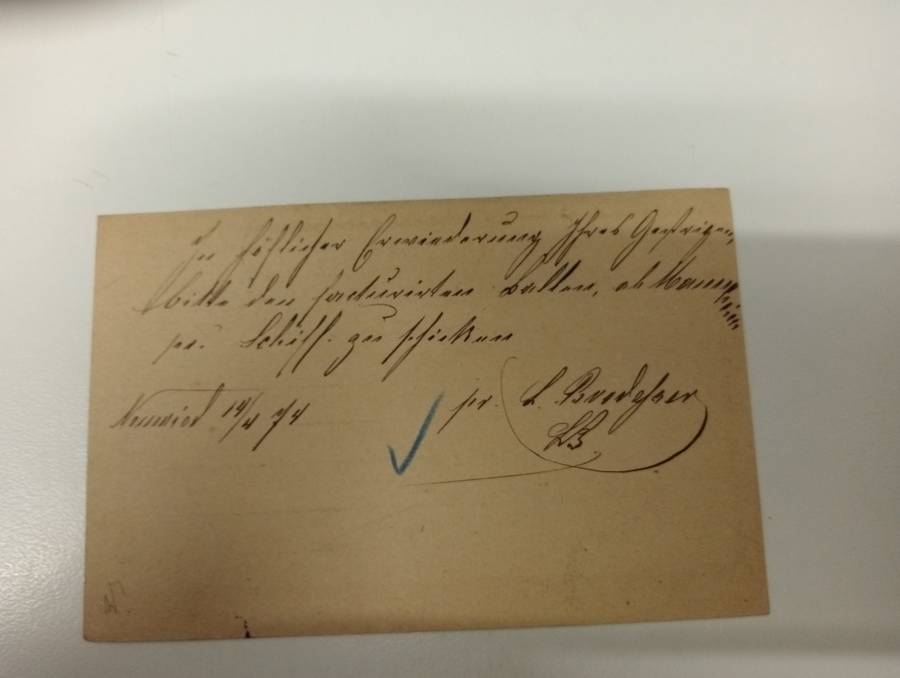 In höflicher Erwiederung Ihres Gestrigen,
bitte den facturirten Ballen, ab Mannheim
pr. Schiff. zu schicken
Neuwied 14/4 74
pr. L. Brodesser
LB